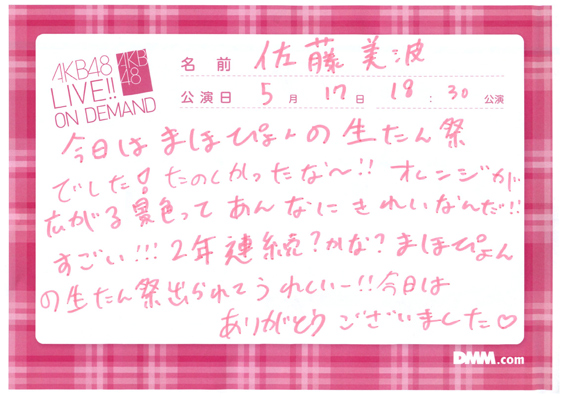 AKB48
LIVE!!
ON DEMAND
AKB
48
名前 佐藤美波
公演日 5月17日 18:30公演
今日はまほぴょんの生たん祭
でした! たのしかったな〜!! オレンジが
広がる景色ってあんなにきれいなんだ!!
すごい!!! 2年連続?かな?まほぴょん
の生たん祭出られてうれしいー!!今日は
ありがとうございました♡
DMM.com